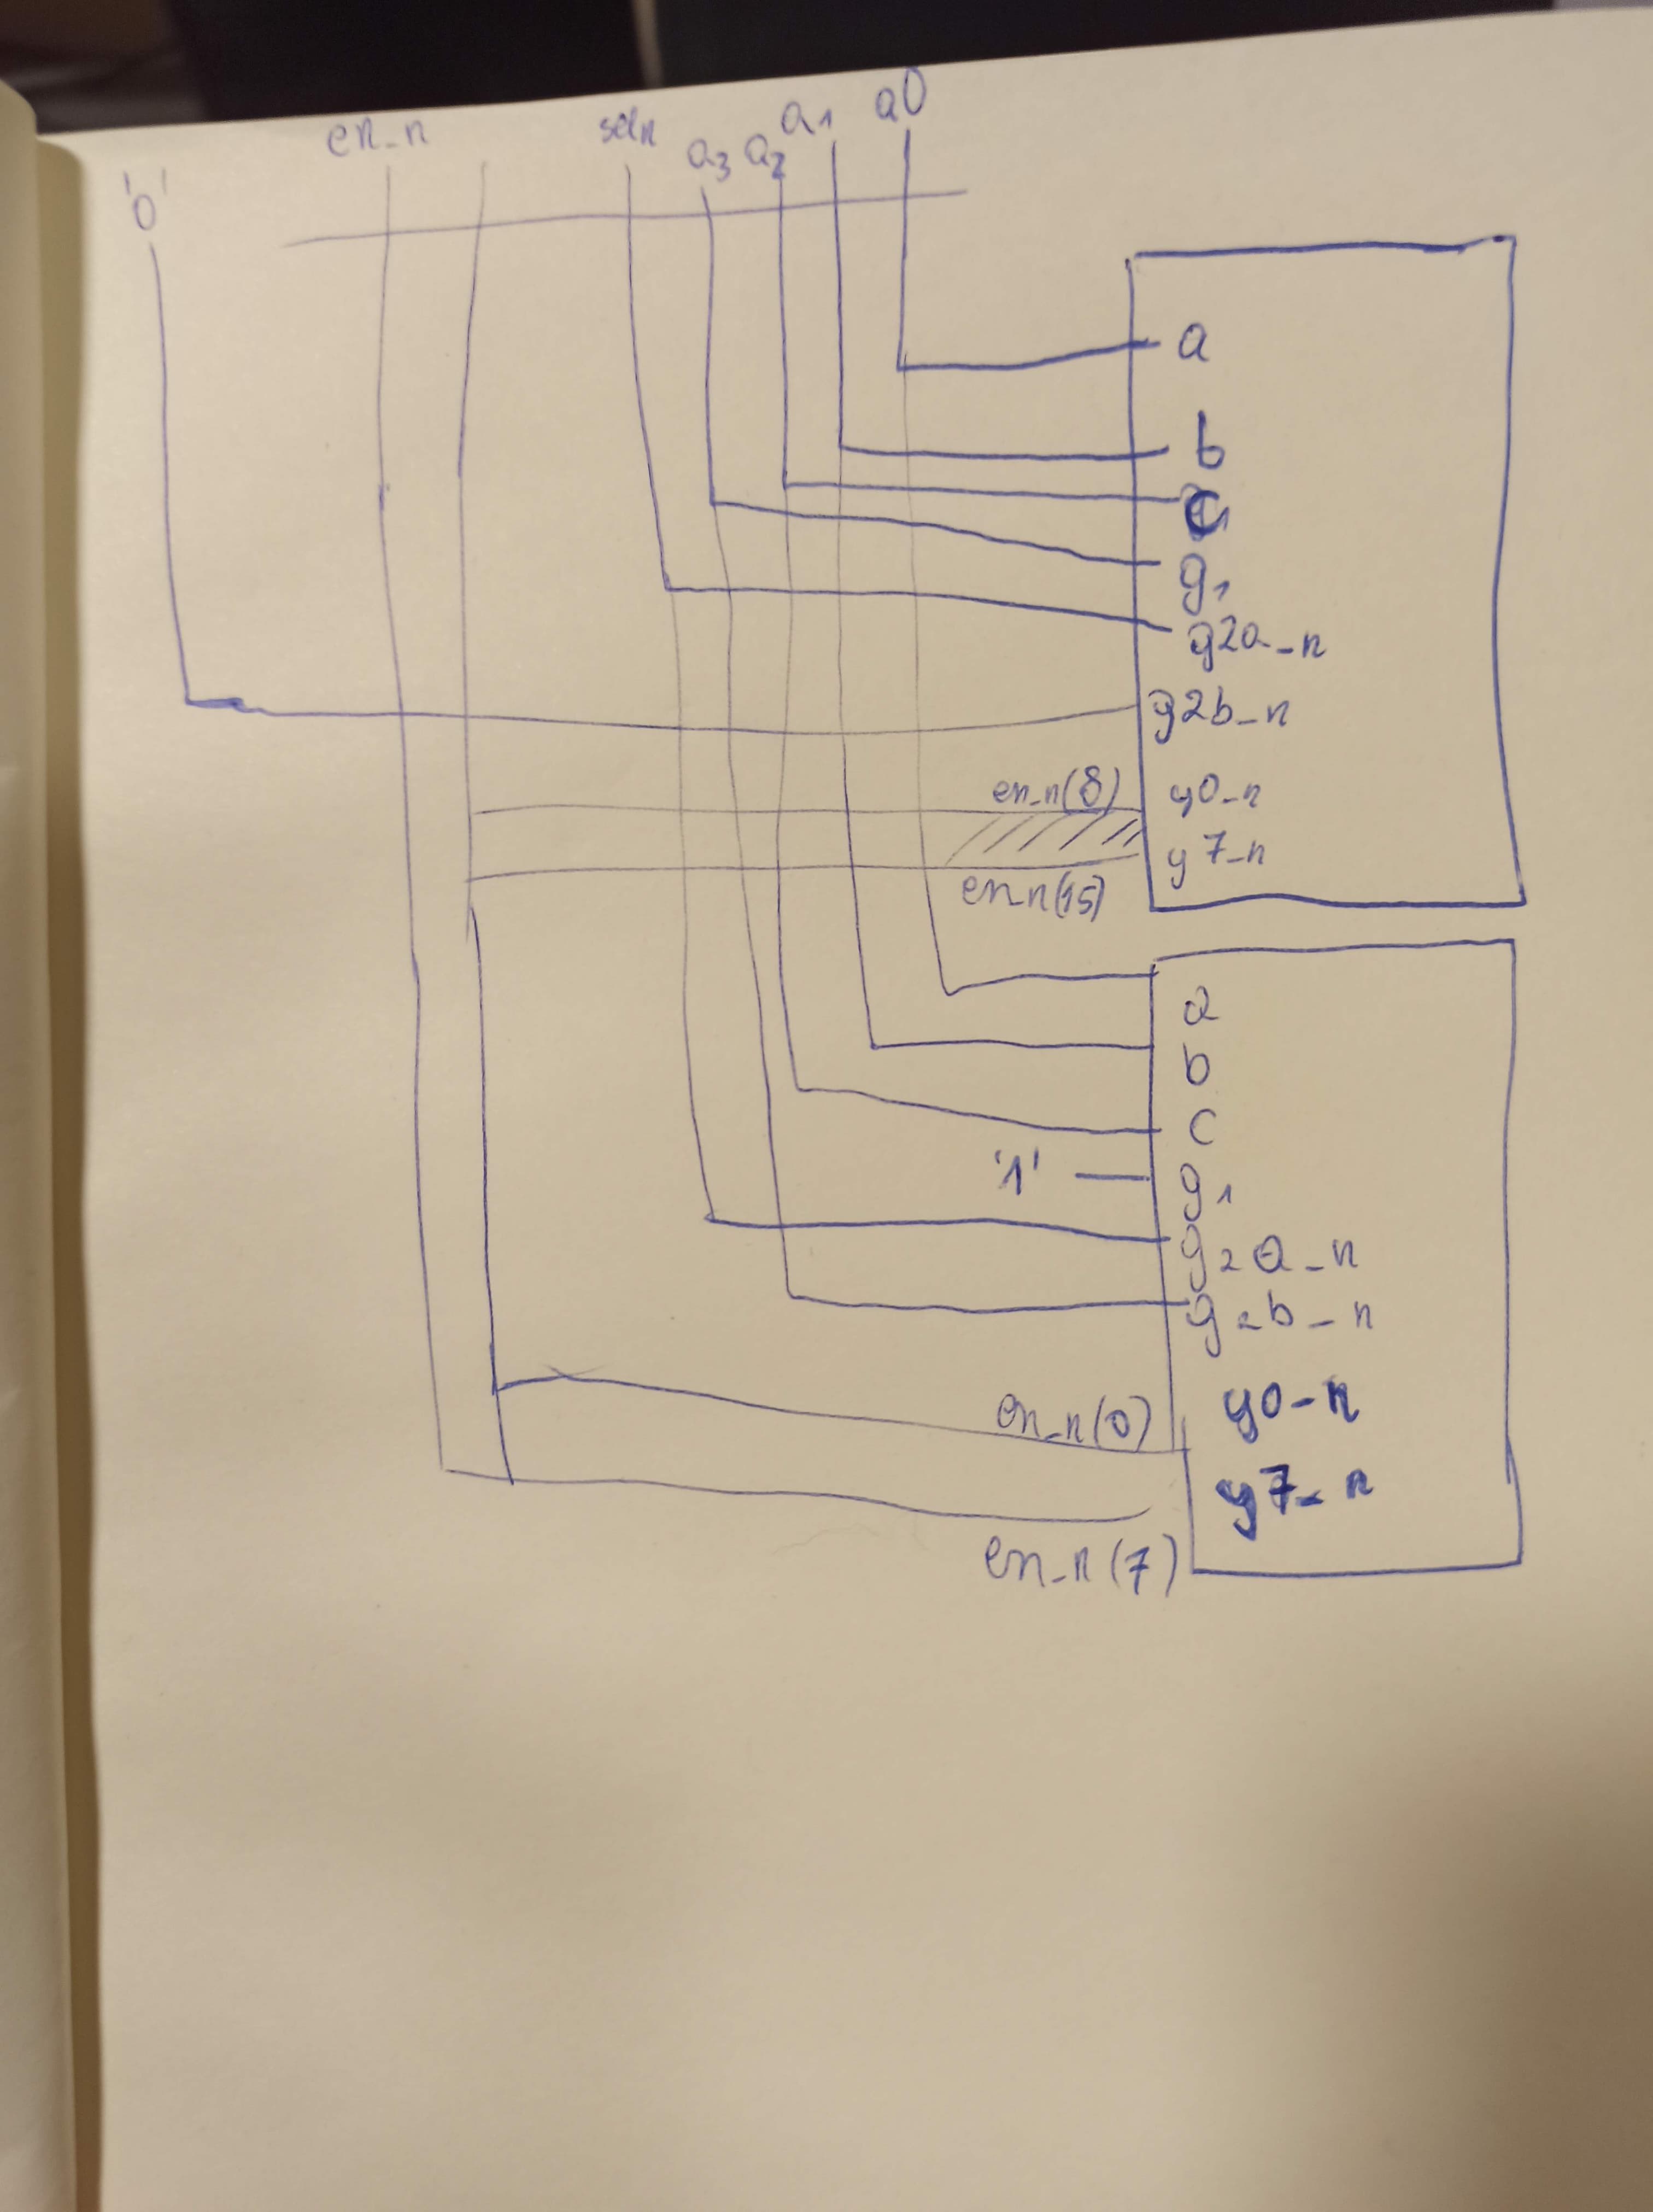 '0' en_n seln a3 a2 a1 a0
a
b
c
g1
g2a_n
g2b_n
en_n(8) y0_n
y7_n
en_n(15)
a
b
c
'1' g1
g2a_n
g2b_n
en_n(0) y0_n
y7_n
en_n(7)